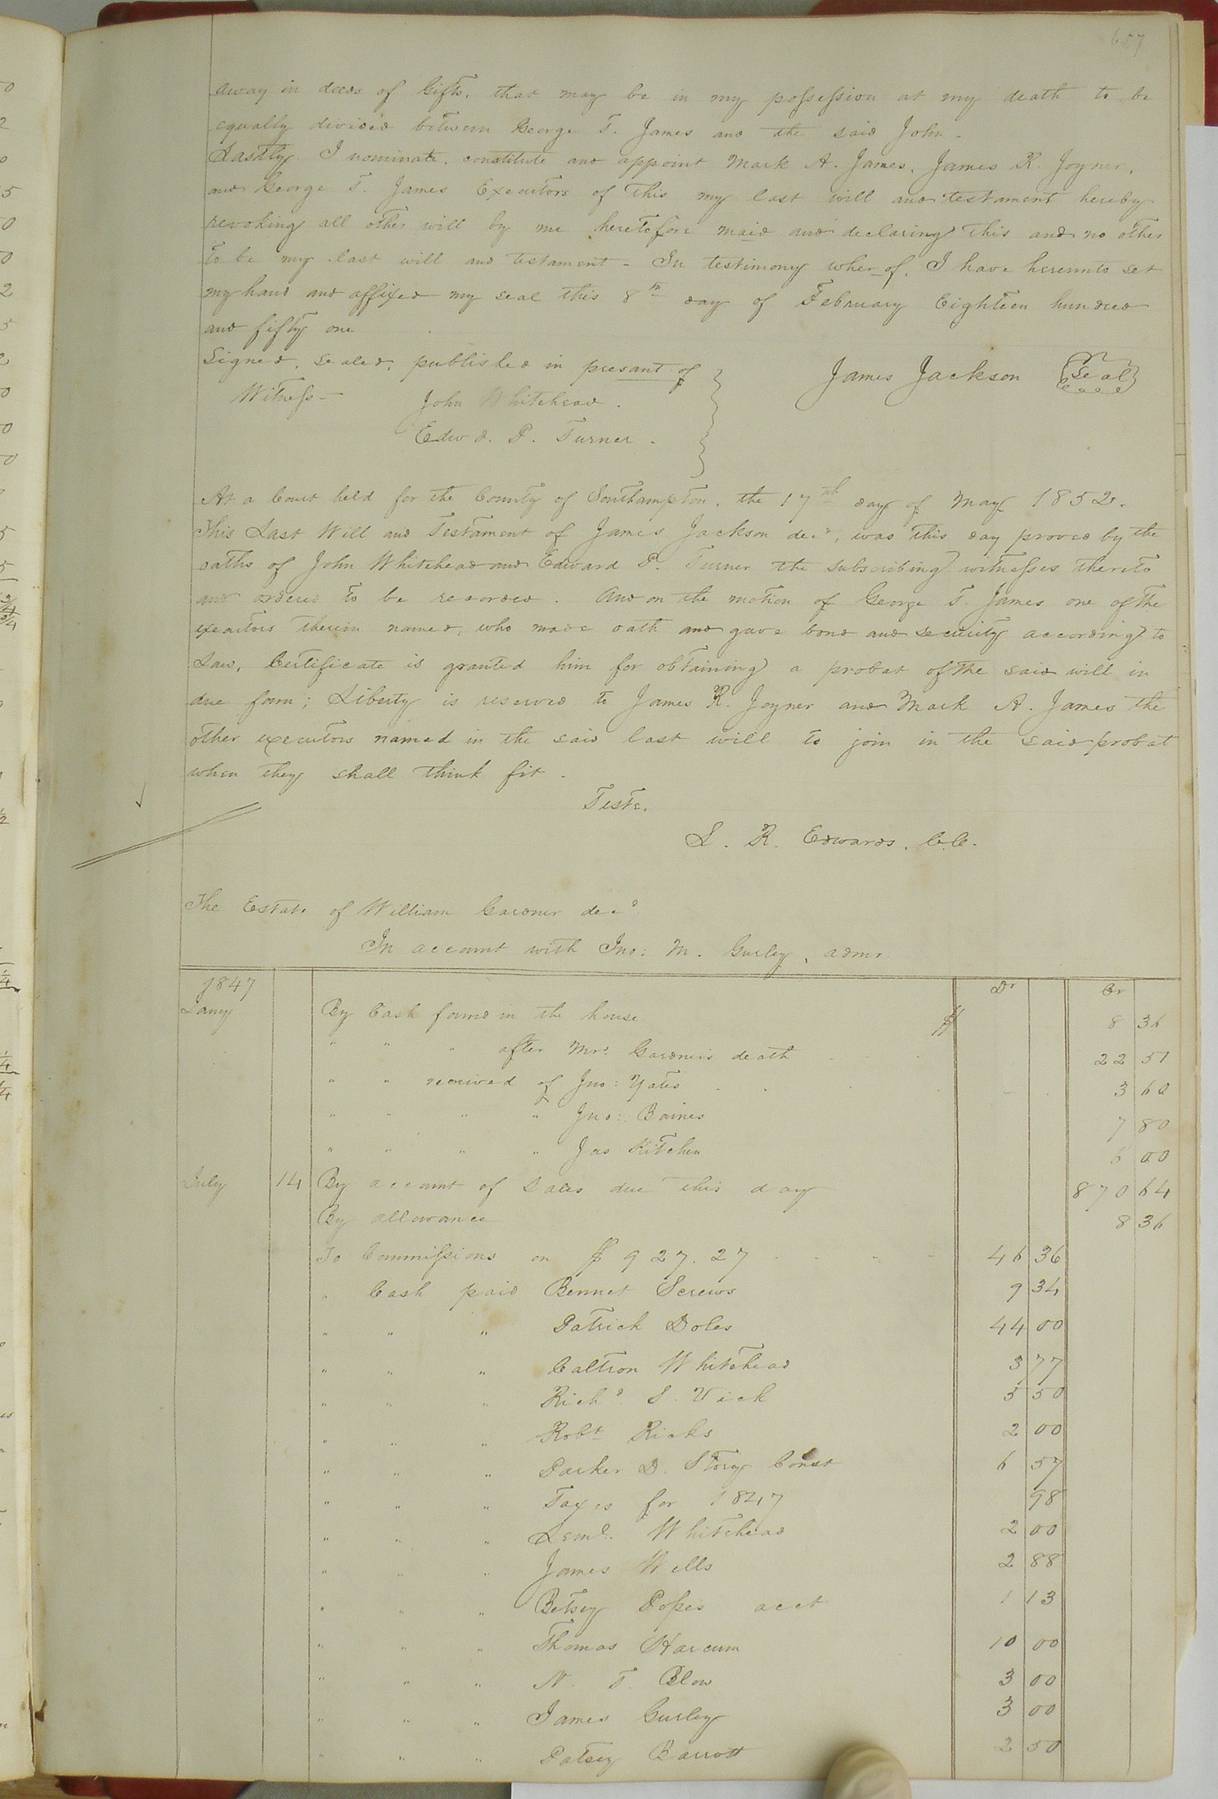 657
away in deeds of Gifts, that may be in my possession at my death to be
equally divided between George T. James and the said John.
Lastly I nominate, constitute and appoint Mark A. James, James R. Joyner,
and George T. James Executors of this my last will and testament hereby
revoking all other will by me heretofore maid and declaring this and no other
to be my last will and testament - In testimony wher_of, I have hereunto set
my hand and affixed my seal this 8th day of February Eighteen hundred
and fifty one
Signed, sealed, published in presant of
James Jackson Seal
Witness -
John Whitehead.
Edwd. P. Turner.
At a Court held for the County of Southampton, the 17th day of May 1852.
This Last Will and Testament of James Jackson decd, was this day proved by the
oaths of John Whitehead and Edward P. Turner the subscribing witnesses thereto
and ordered to be recorded. And on the motion of George T. James one of the
executors therein named, who made oath and gave bond and security according to
Law, Certificate is granted him for obtaining a probat of the said will in
due form; Liberty is reserved to James R. Joyner and Mark A. James the
other executors named in the said last will to join in the said probat
when they shall think fit.
Teste.
L. R. Edwards, C.C.
The Estate of William Gardner decd
In account with Jno: M. Gurley, admr
Dr Cr
1847
Jany By Cash found in the house $ 8 36
" " " after Mrs. Gardner's death 22 51
" " received of Jno: Yates 3 60
" " " " Jno: Barnes 7 80
" " " " Jas Kitchen 6 00
July 14 By account of Sales due this day 870 64
By allowance 8 36
To Commissions on $927.27 46 36
" Cash paid Bennet Screws 9 34
" " " Patrick Doles 44 00
" " " Caltron Whitehead 3 77
" " " Richd S. Vick 5 50
" " " Robt Ricks 2 00
" " " Parker D. Story Const 6 57
" " " Taxes for 1847 98
" " " Leml. Whitehead 2 00
" " " James Wells 2 88
" " " Betsey Popes acct 1 13
" " " Thomas Harcum 10 00
" " " N. T. Blow 3 00
" " " James Gurley 3 00
" " " Patsey Barrott 2 50